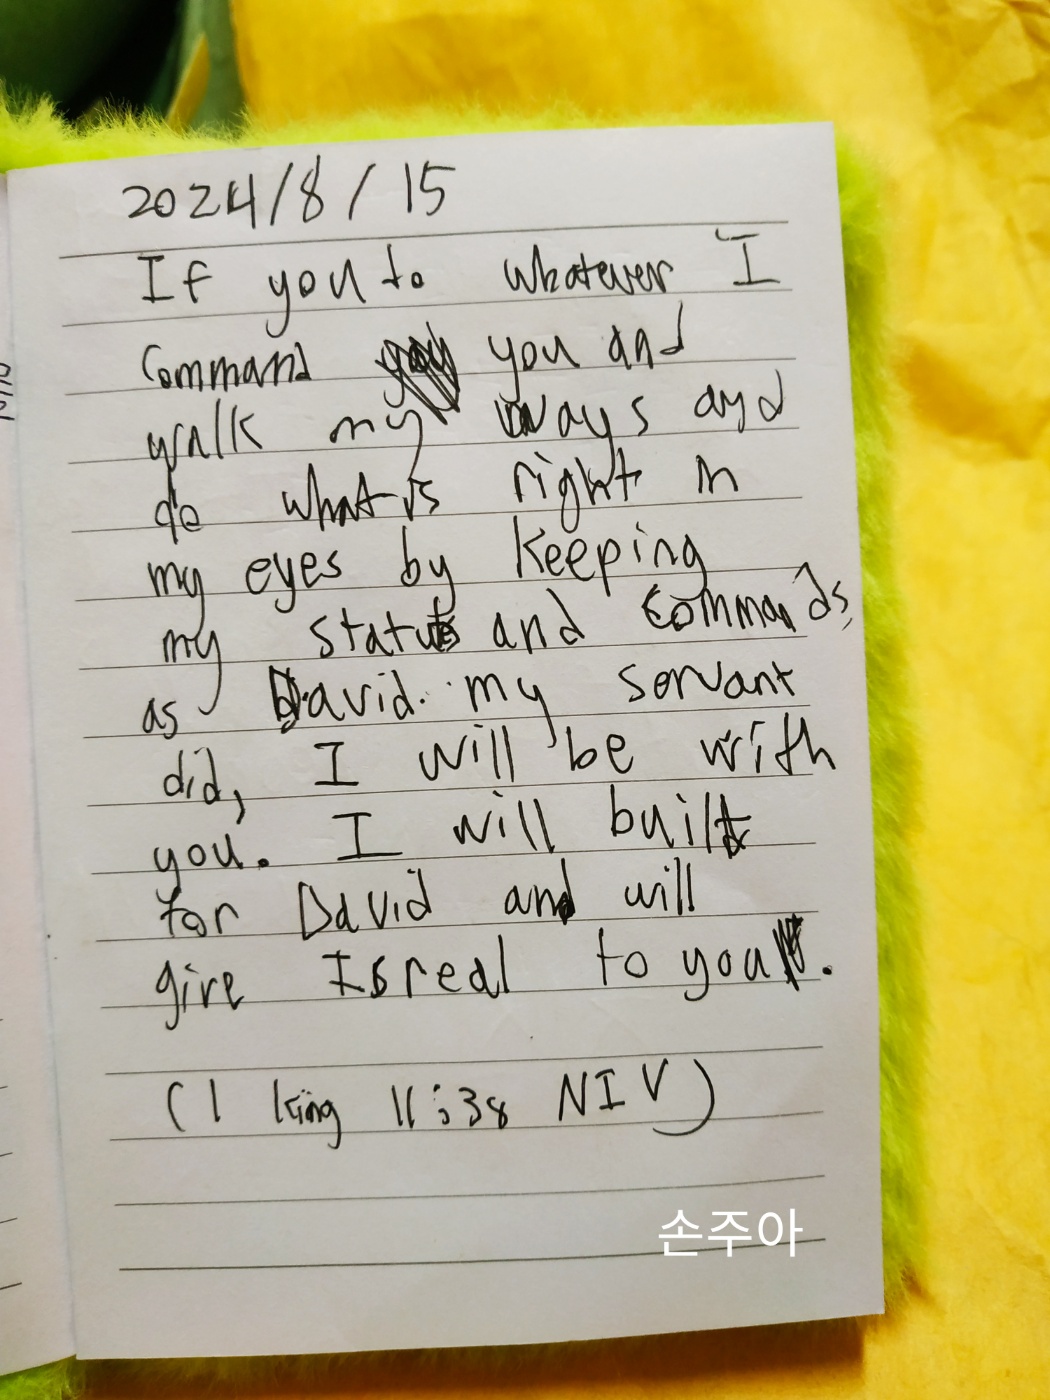 2024/8/15
If you to whatever I
Command you and
walk my ways and
do what is right in
my eyes by keeping
my statuts and commands,
as David my servant
did, I will be with
you. I will built
for David and will
give Isreal to you.
(1 king 11:38 NIV)
손주아